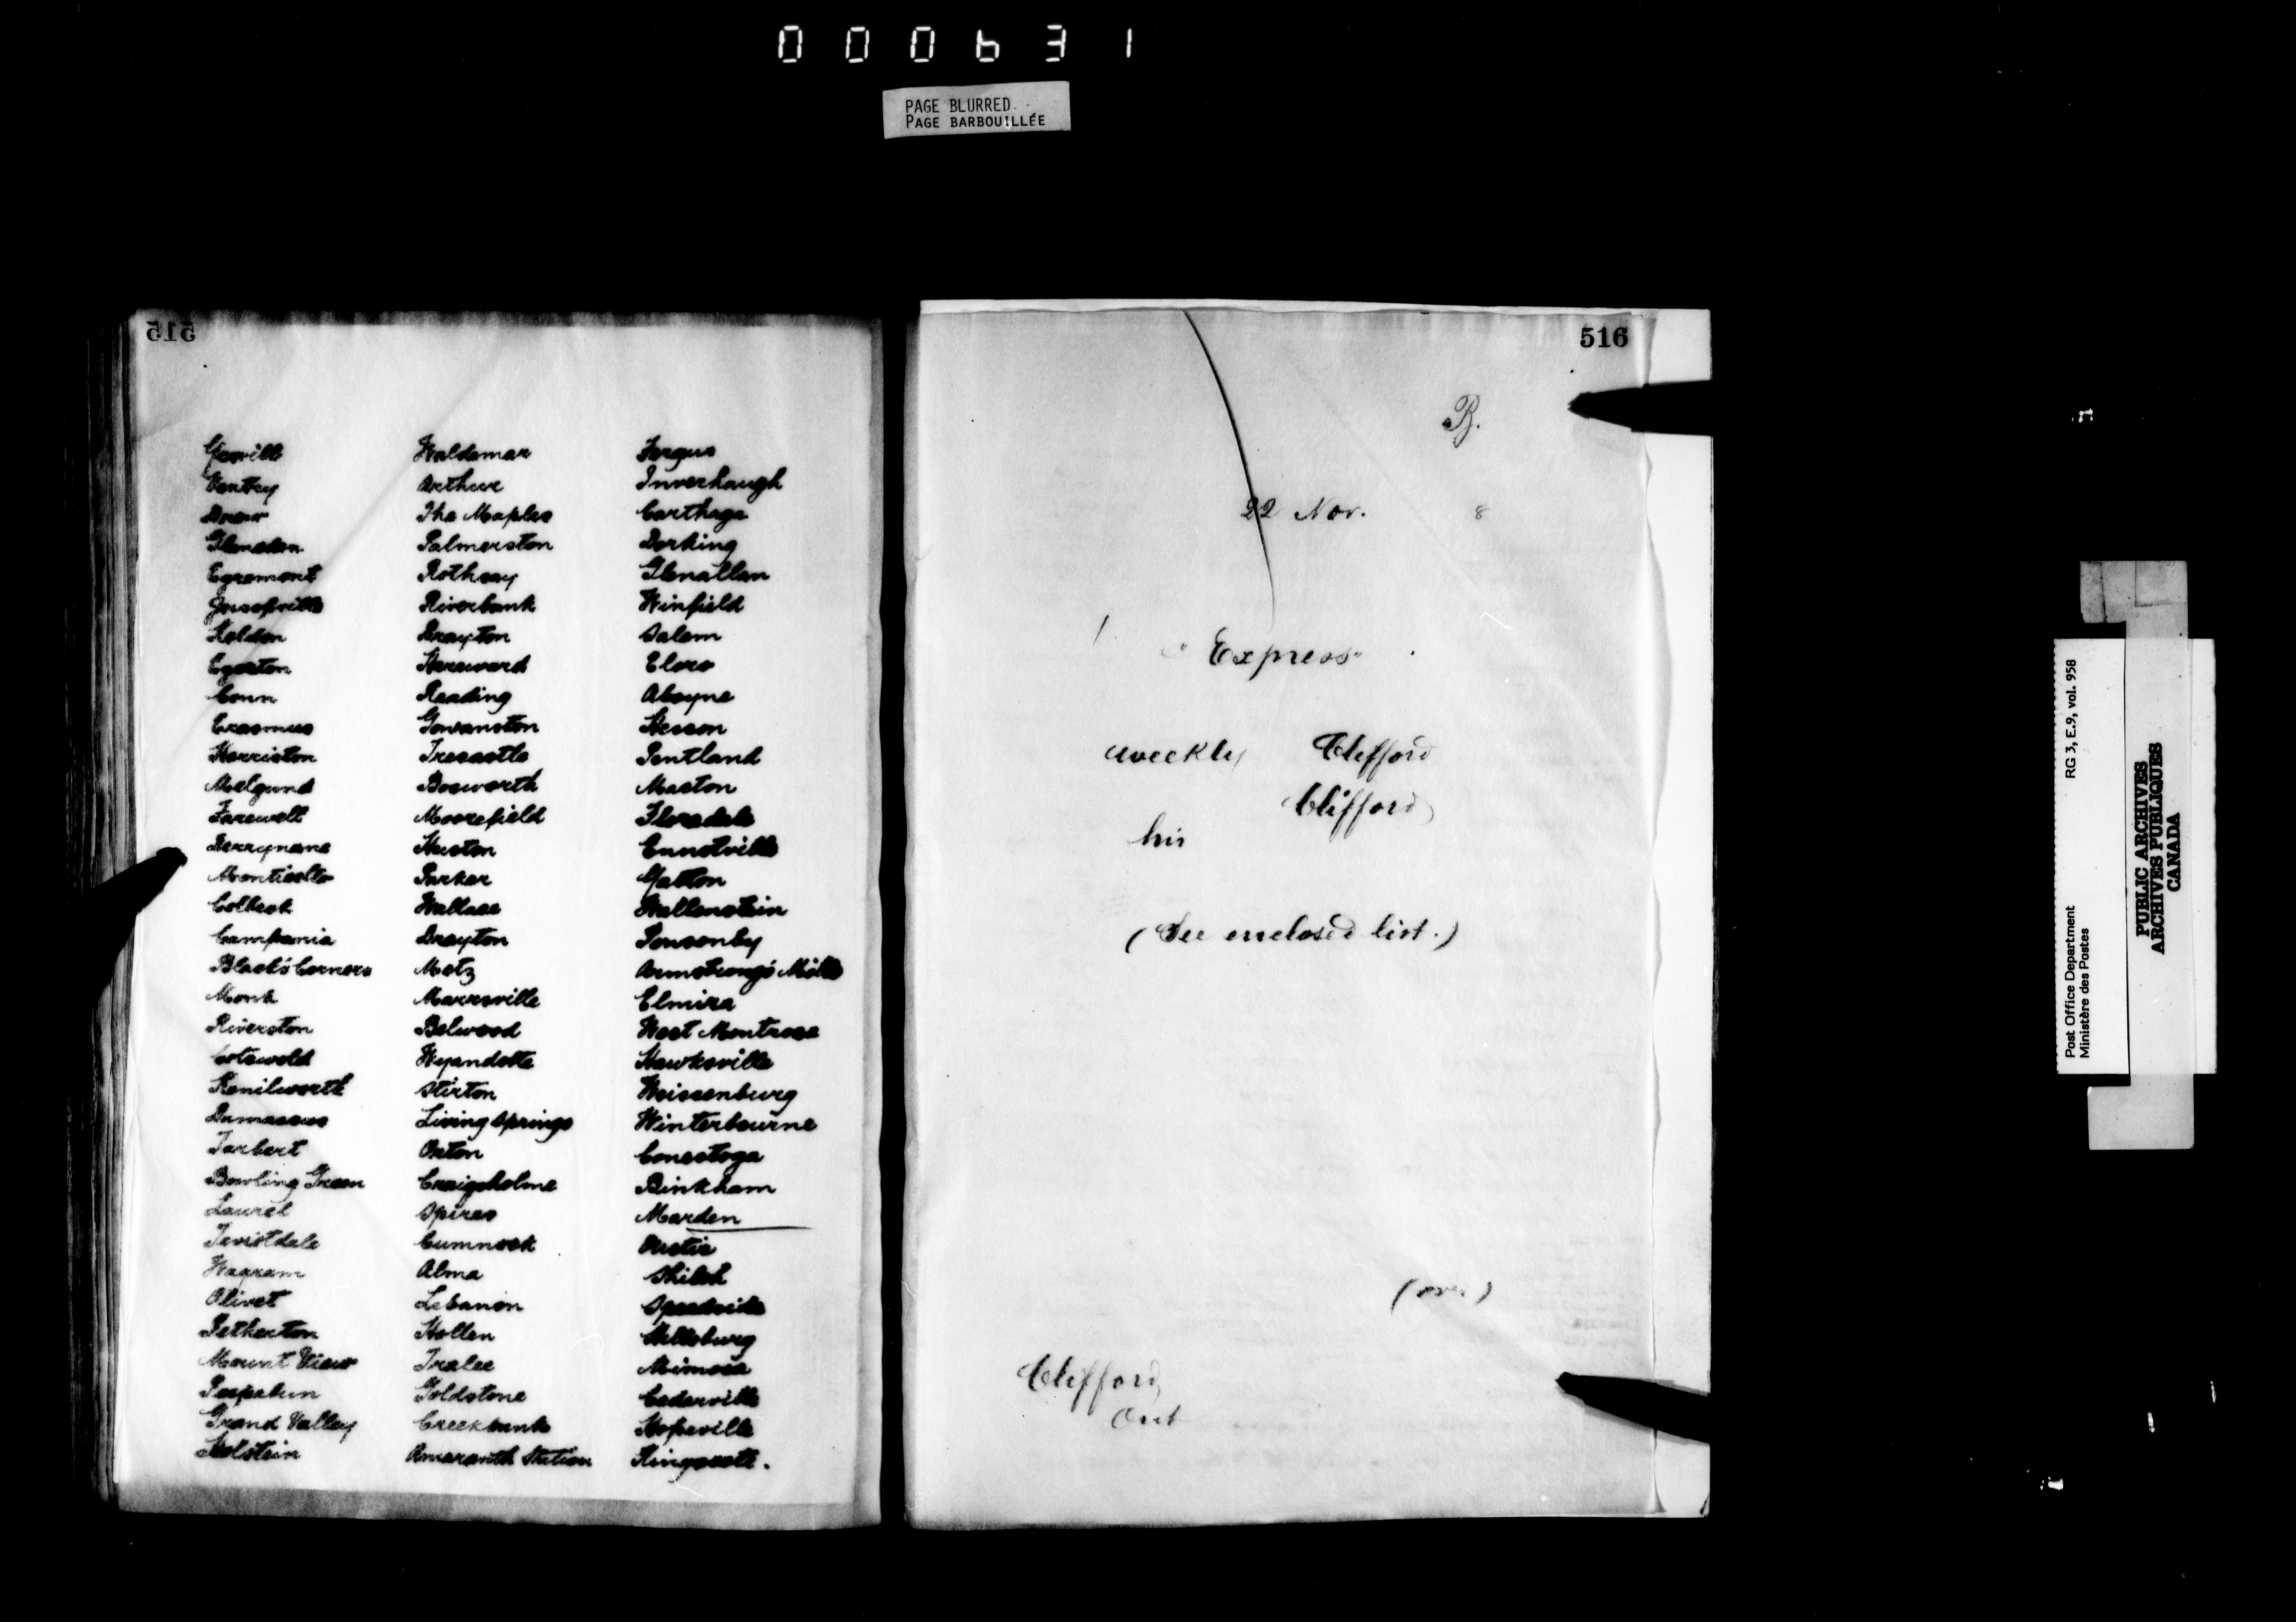 000631
PAGE BLURRED.
PAGE BARBOUILLÉE
515
Yeovil Waldemar Fergus
Ventry Arthur Inverhaugh
Drew The Maples Carthage
Gleneden Palmerston Dorking
Egremont Rothsay Glenallan
Josephville Riverbank Winfield
Keldon Drayton Salem
Egerton Hereward Elora
Conn Reading Aboyne
Erasmus Gowanston Hesson
Harriston Trecastle Pentland
Melgund Bosworth Macton
Farewell Moorefield Floradale
Derrynane Huston Ennotville
Monticello Parker Yatton
Colbeck Wallace Wallenstein
Campania Drayton Ponsonby
Black's Corners Metz Armstrong's Mills
Monck Marsville Elmira
Riverston Belwood West Montrose
Cotswold Wyandotte Hawksville
Kenilworth Stirton Weissenburg
Damascus Living Springs Winterbourne
Tarbert Orton Conestoga
Bowling Green Craigsholme Birkham
Laurel Spires Marden
Teviotdale Cumnock Oustic
Wagram Alma Shiloh
Olivet Lebanon Speedside
Petherton Hollen Hillsburg
Mount View Tralee Mimosa
Peepabun Goldstone Cedarville
Grand Valley Creekbank Hopeville
Holstein Amaranth Station Kingscote.
516
B.
22 Nov. 8
"Express"
weekly Clifford
Clifford
his
(See enclosed list.)
(over)
Clifford
Ont
Post Office Department RG 3, E.9, vol. 958
Ministère des Postes
PUBLIC ARCHIVES
ARCHIVES PUBLIQUES
CANADA